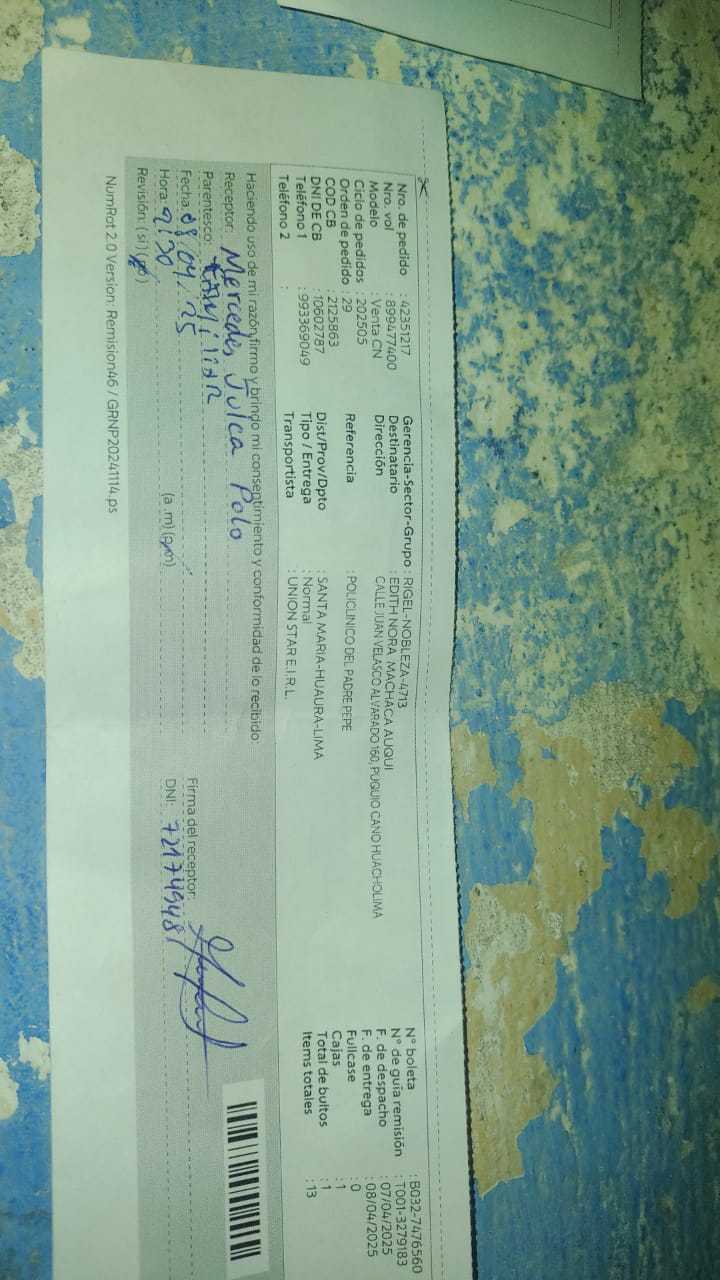 Nro. de pedido : 42351217
Nro. vol : 899477400
Modelo : Venta CN
Ciclo de pedidos : 202505
Orden de pedido : 29
COD CB : 2125863
DNI DE CB : 10602787
Teléfono 1 : 993369049
Teléfono 2 :
Gerencia-Sector-Grupo : RIGEL-NOBLEZA-4713
Destinatario : EDITH NORA MACHACA AUQUI
Dirección : CALLE JUAN VELASCO ALVARADO 160, PUQUIO CANO HUACHOLIMA
Referencia : POLICLINICO DEL PADRE PEPE
Dist/Prov/Dpto : SANTA MARIA-HUAURA-LIMA
Tipo / Entrega : Normal
Transportista : UNION STAR E.I.R.L.
N° boleta : B032-7476560
N° de guía remisión : T001-3279183
F. de despacho : 07/04/2025
F. de entrega : 08/04/2025
Fullcase : 0
Cajas : 1
Total de bultos : 1
Items totales : 13
Haciendo uso de mi razón, firmo y brindo mi consentimiento y conformidad de lo recibido:
Receptor: Mercedes Julca Polo
Parentesco: FAMILIAR
Fecha: 08/04/25
Hora: 9:30 (a.m) (p.m)
Revisión: (si) (no)
Firma del receptor:
DNI: 72174948
NumRot 2.0 Version: Remision46 / GRNP20241114.ps